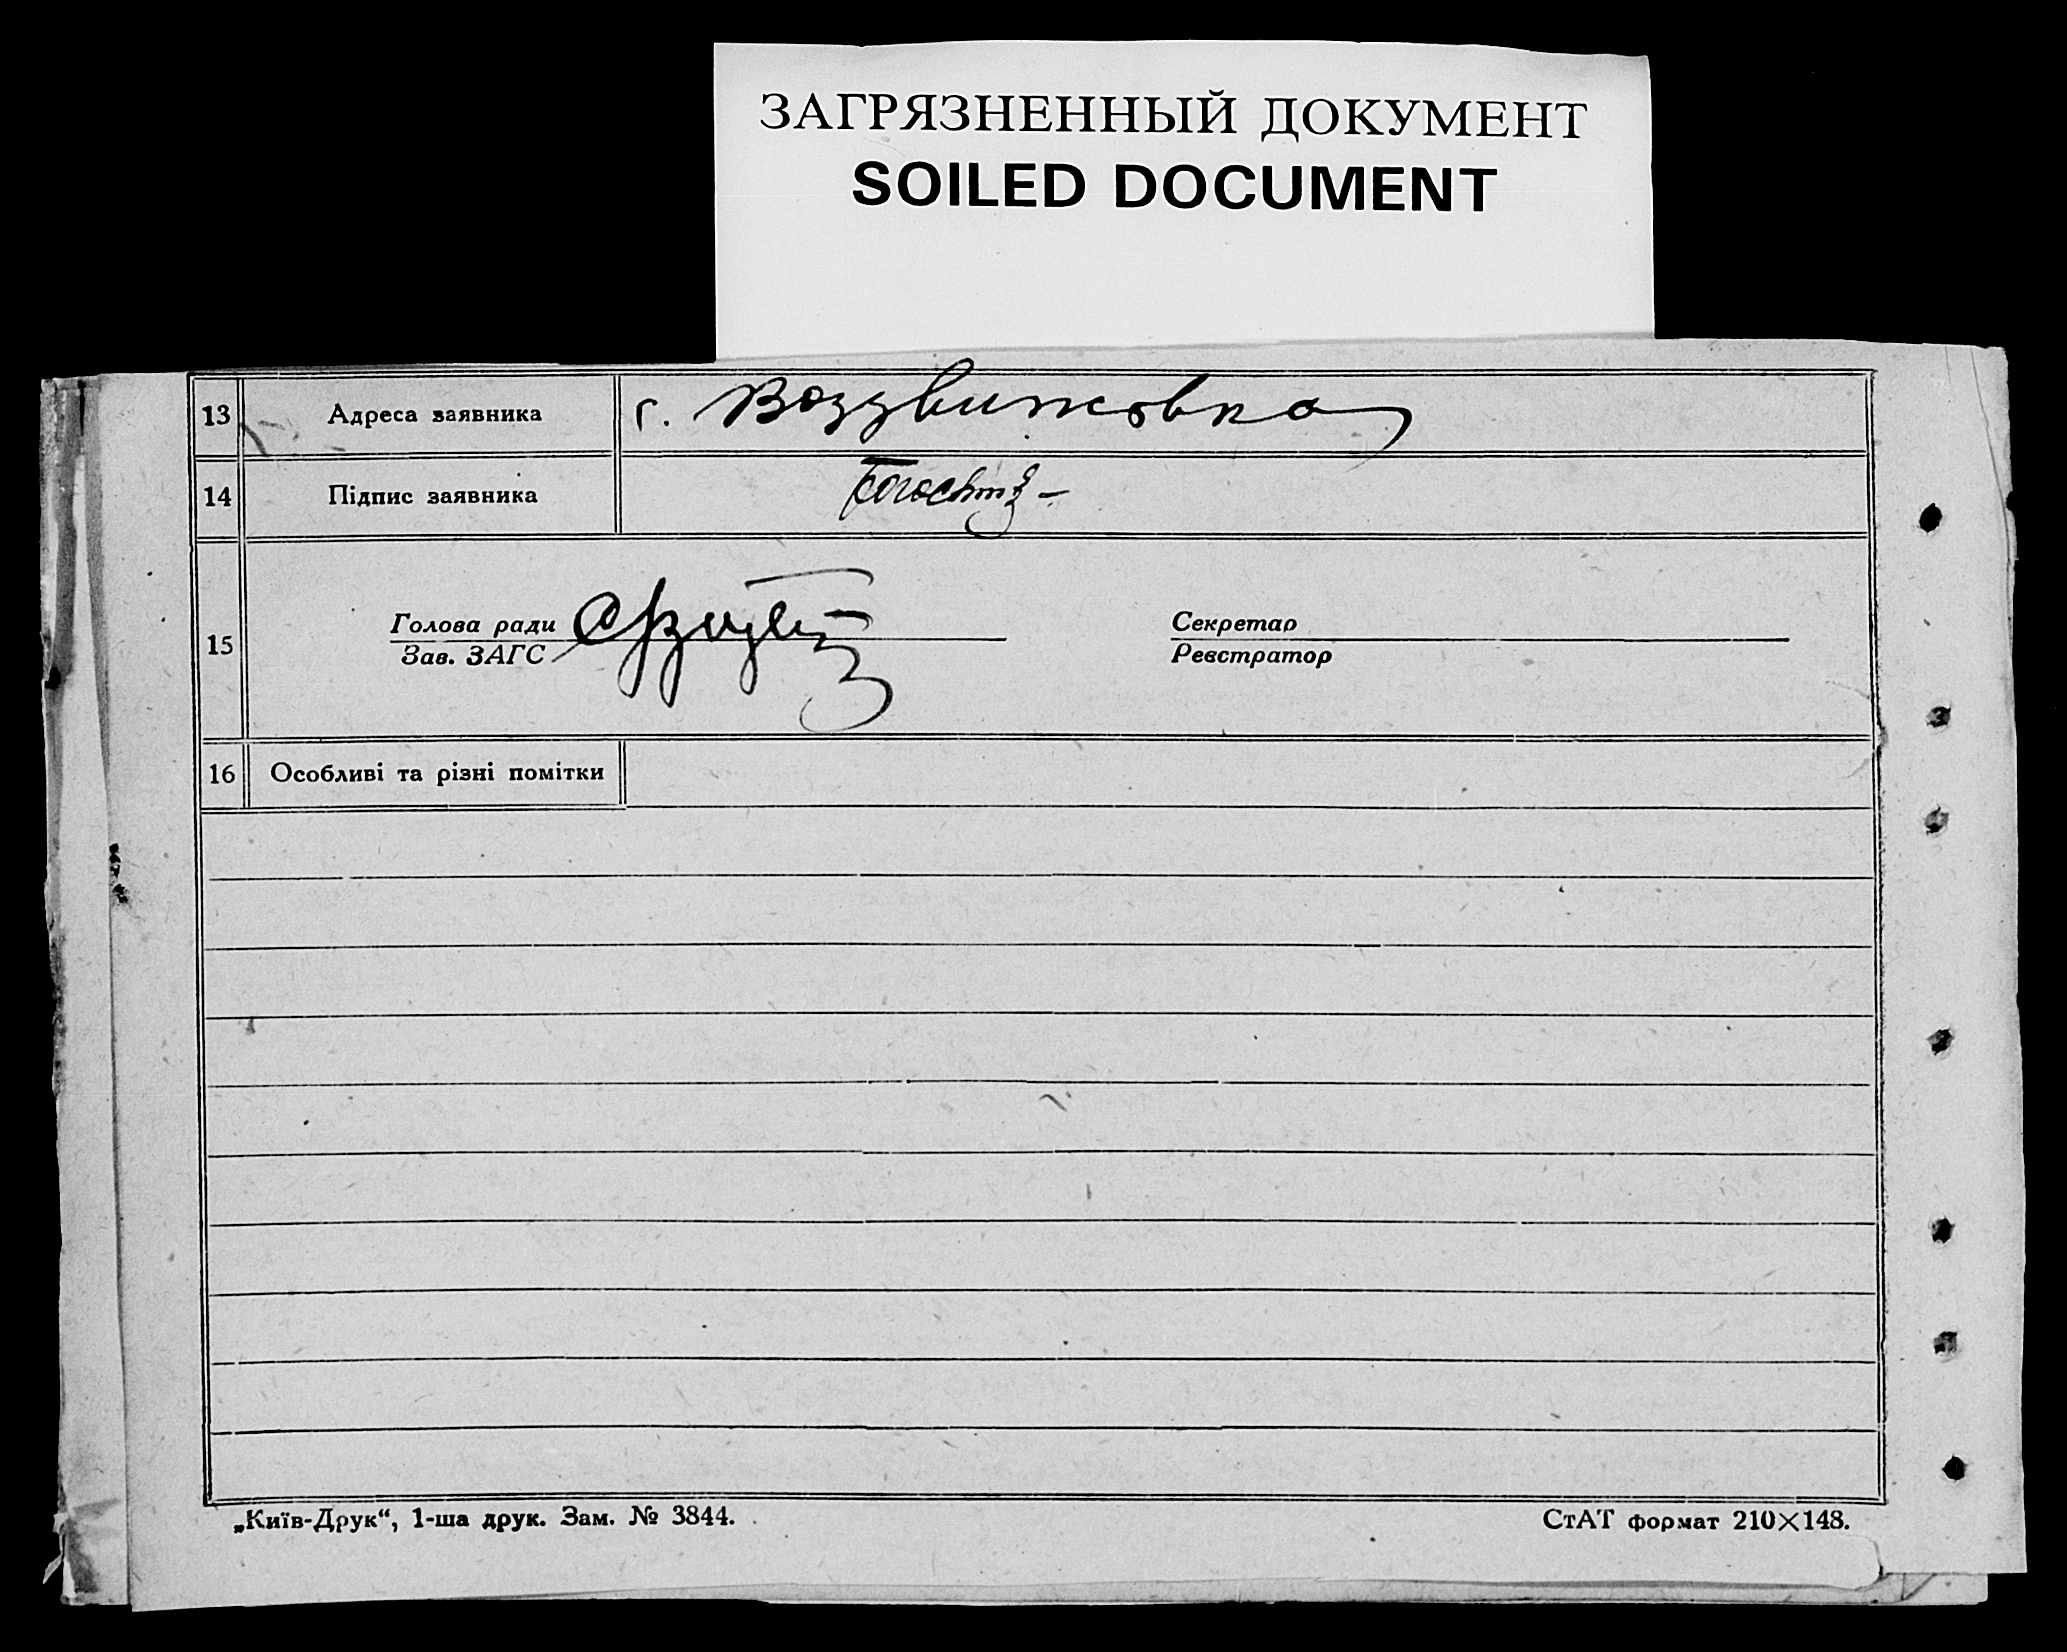 ЗАГРЯЗНЕННЫЙ ДОКУМЕНТ
SOILED DOCUMENT
13 Адреса заявника г. Воздвижовка
14 Підпис заявника
15 Голова ради Секретар
Зав. ЗАГС Реєстратор
16 Особливі та різні помітки
„Київ-Друк“, 1-ша друк. Зам. № 3844. СтАТ формат 210×148.